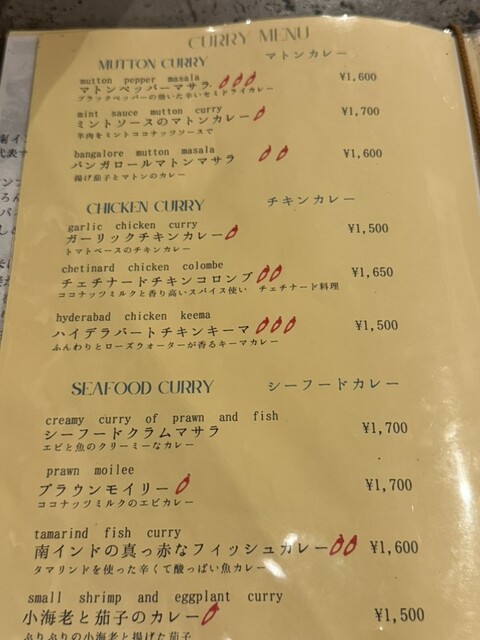 CURRY MENU
MUTTON CURRY マトンカレー
mutton pepper masala
マトンペッパーマサラ ¥1,600
ブラックペッパーの効いた辛いセミドライカレー
mint sauce mutton curry
ミントソースのマトンカレー ¥1,700
羊肉をミントココナッツソースで
bangalore mutton masala
バンガロールマトンマサラ ¥1,600
揚げ茄子とマトンのカレー
CHICKEN CURRY チキンカレー
garlic chicken curry
ガーリックチキンカレー ¥1,500
トマトベースのチキンカレー
chetinard chicken colombe
チェチナードチキンコロンブ ¥1,650
ココナッツミルクと香り高いスパイス使い チェチナード料理
hyderabad chicken keema
ハイデラバートチキンキーマ ¥1,500
ふんわりとローズウオーターが香るキーマカレー
SEAFOOD CURRY シーフードカレー
creamy curry of prawn and fish
シーフードクラムマサラ ¥1,700
エビと魚のクリーミーなカレー
prawn moilee
プラウンモイリー ¥1,700
ココナッツミルクのエビカレー
tamarind fish curry
南インドの真っ赤なフィッシュカレー ¥1,600
タマリンドを使った辛くて酸っぱい魚カレー
small shrimp and eggplant curry
小海老と茄子のカレー ¥1,500
ぷりぷりの小海老と揚げた茄子